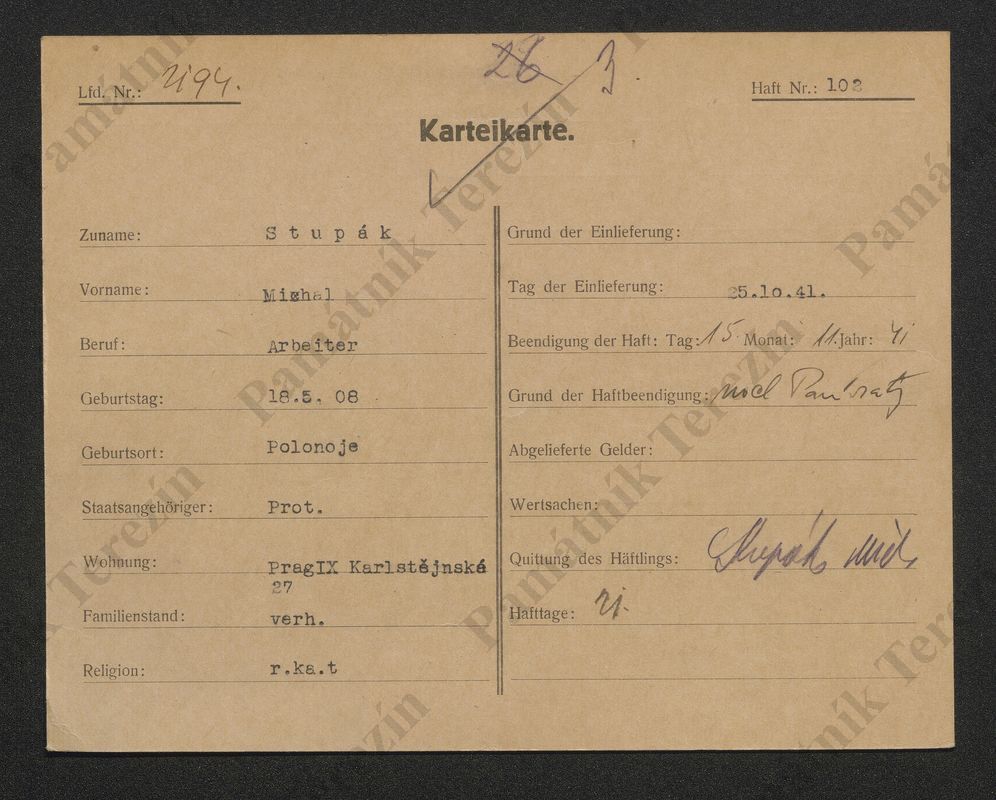 Lfd. Nr.: 2194.
26 3.
Haft Nr.: 102
Karteikarte.
Zuname: Stupák
Vorname: Michal
Beruf: Arbeiter
Geburtstag: 18.5. 08
Geburtsort: Polonoje
Staatsangehöriger: Prot.
Wohnung: PragIX Karlstějnská
27
Familienstand: verh.
Religion: r.ka.t
Grund der Einlieferung:
Tag der Einlieferung: 25.10.41.
Beendigung der Haft: Tag: 15. Monat: 11. Jahr: 41
Grund der Haftbeendigung: nach Pankratz
Abgelieferte Gelder:
Wertsachen:
Quittung des Häftlings: Stupák Mich
Hafttage: 21.
Památník Terezín
Památník Terezín
Památník Terezín